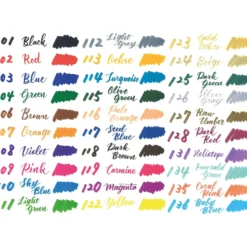 01 Black
02 Red
03 Blue
04 Green
06 Brown
07 Orange
08 Violet
09 Pink
10 Sky Blue
11 Light Green
112 Light Grey
113 Ochre
114 Turquoise
115 Olive Green
116 Pale Orange
117 Steel Blue
118 Dark Brown
119 Carmine
120 Magenta
122 Yellow
123 Gold Ochre
124 Beige
125 Dark Green
126 Silver Grey
127 Raw Umber
128 Dark Red
131 Heliotrope
133 Emerald Green
135 Coral Pink
136 Baby Blue